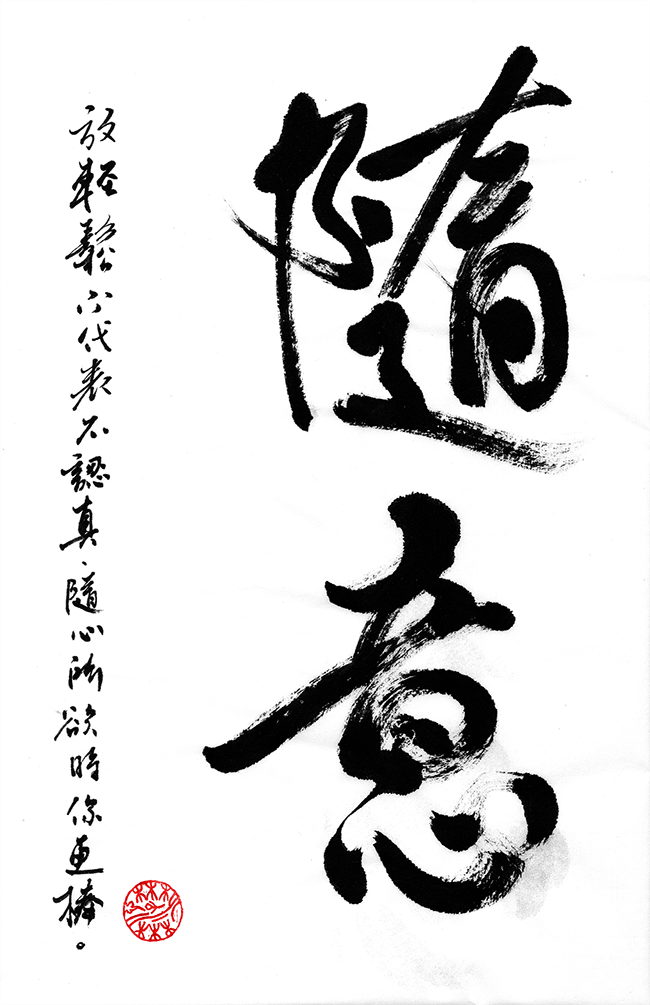 隨意
放輕鬆不代表不認真、隨心所欲時你更棒。